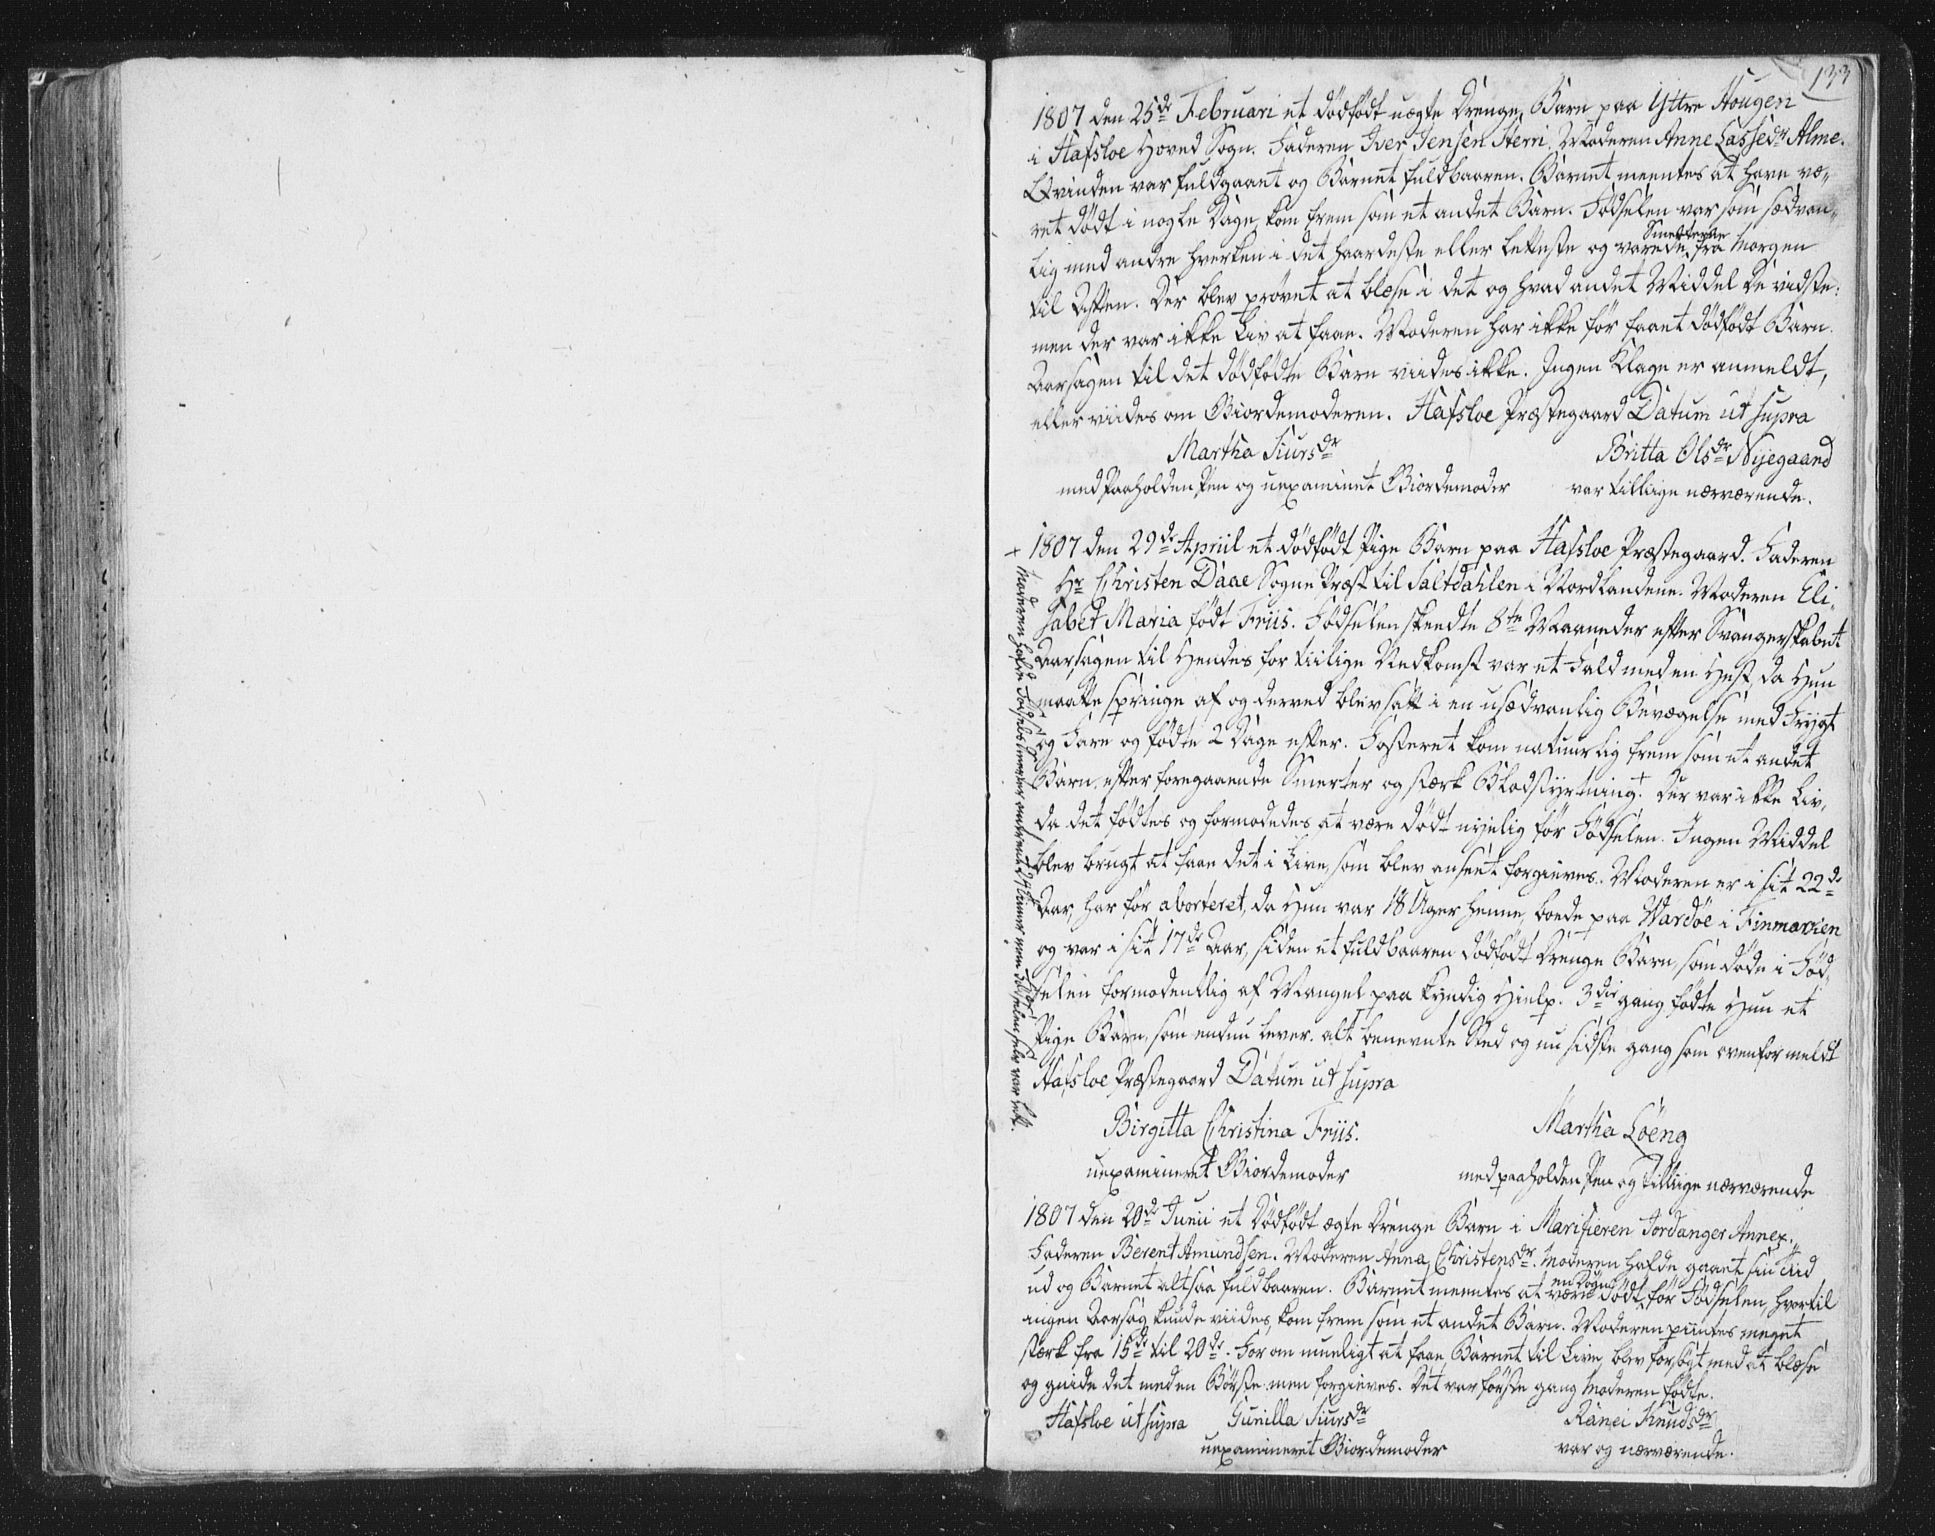 133
1807 den 25de Februari et dødfødt uægte Drenge Barn paa Yttre Hougen
i Hafsloe Hoved Sogn. Faderen Iver Jensen Sterri. Moderen Anne Lassedr Alme.
Qvinden var fuldgaaet og Barnet fuldbaaren. Barnet meentes at have væ-
ret dødt i nogle Dage, kom frem som et andet Barn. Fødselen var som sædvan-
lig med andre hverken i det haardeste eller letteste og varede Smerterne fra Morgen
til Aften. Der blev prøvet at blæse i det og hvad andet Middel De vidste:
men der var ikke Liv at faae. Moderen har ikke før faaet dødfødt Barn.
Aarsagen til det dødfødte Barn viides ikke. Ingen Klage er anmeldt,
eller viides om Giordemoderen. Hafsloe Præstegaard Datum ut supra
Martha Siursdr Britta Olsdr Nyegaard
med paaholden Pen og uexaminet Giordemoder var tilliige nærværende.
1807 den 29de Apriil et dødfødt Pige Barn paa Hafsloe Præstegaard. Faderen
Hr Christen Daae Sogne Præst til Saltdahlen i Nordlandene. Moderen Eli-
sabet Maria født Friis. Fødselen skeedte 8te Maaneder efter Svangerskabet
Aarsagen til Hendes for tiilige Nedkomst var et Fald med en Hest, da Hun
maatte springe af og derved blev satt i en usædvanlig Bevægelse med Frygt
og Fare og fødte 2 Dage efter. Fosteret kom naturlig frem som et andet
Barn efter foregaaende Smerter og stærk Blodstyrtning. + Der var ikke Liv,
da det fødtes og formodedes at være dødt nyelig før Fødselen. Ingen Middel
blev brugt at faae det i Live, som blev anseet forgieves. Moderen er i sit 22de
Aar, har før aborteret, da Hun var 18 Uger henne, boede paa Wardøe i Finmarcken
og var i sit 17de Aar, siden et fuldbaaren dødfødt Drenge Barn, som døde i Fød-
selen formodentlig af Mangel paa kyndig Hielp. 3die gang fødte Hun et
Pige Barn, som endnu lever. alt benevnte Sted og nu sidste gang som ovenfor meldt
Hafsloe Præstegaard Datum ut supra
+ Moderen hafde Fødselssmerter omtrent 24 Timer men Fødselen selv var let.
Birgitta Christina Friis. Martha Löeng
uexamineret Giordemoder med paaholden Pen og tilliige nærværende
1807 den 20de Junii et Dødfødt ægte Drenge Barn i Marifieren Jordanger Annex.
Faderen Berent Amundsen. Moderen Anna Christensdr. Moderen hafde gaaet sin Tid
ud og Barnet altsaa fuldbaaren. Barnet meentes at være en Dag dødt før Fødselen, hvortil
ingen Aarsag kunde viides, kom frem som et andet Barn. Moderen piintes meget
stærk fra 15de til 20de. For om mueligt at faae Barnet til Live, blev forsøgt med at blæse
og gnide det med en Børste men forgieves. Det var første gang Moderen fødte.
Hafsloe ut supra Gunilla Siursdr Ranei Knudsdr
uexamineret Giordemoder var og nærværende.